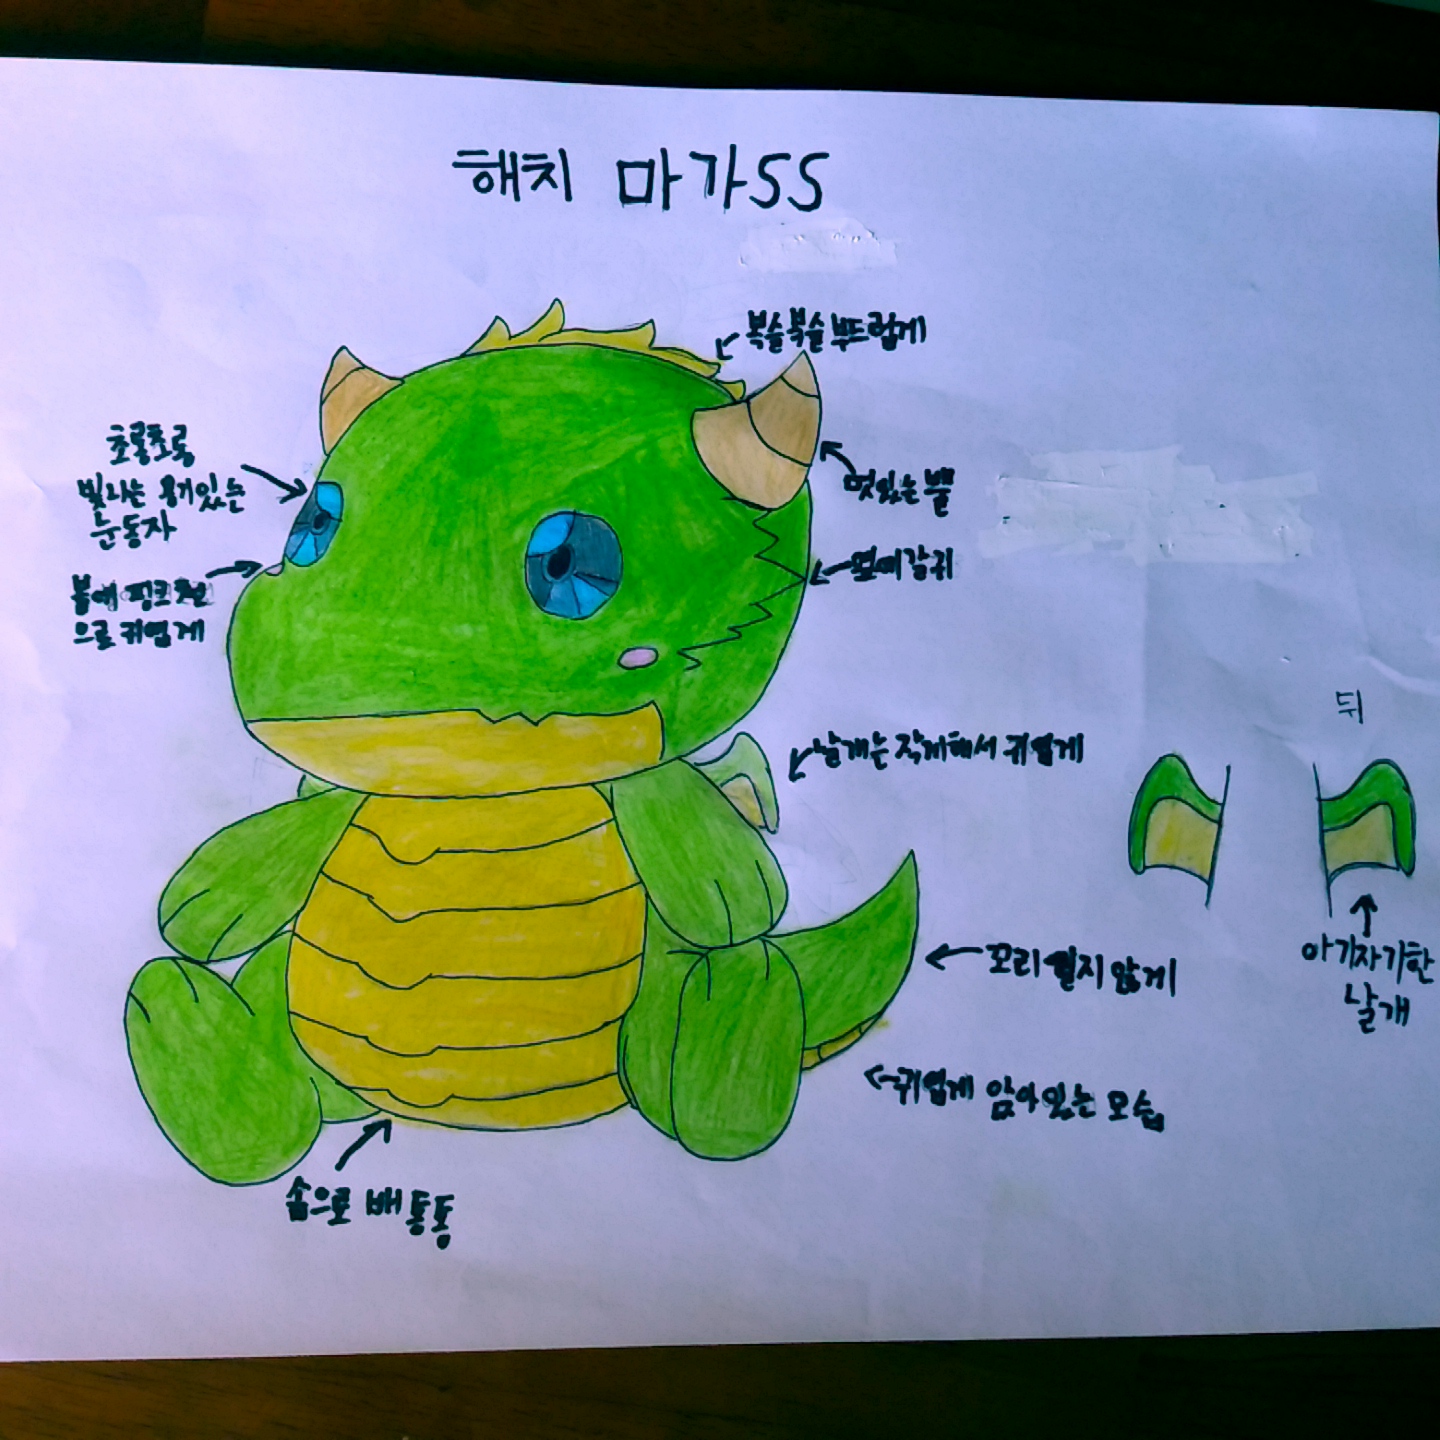 해치 마가SS
복슬복슬 부드럽게
초롱초롱
빛나는 용기있는
눈동자
멋있는 뿔
옆에 갈귀
볼에 핑크
으로 귀엽게
뒤
날개는 작게해서 귀엽게
꼬리 길지 않게
아기자기한
날개
귀엽게 앉아있는 모습
솜으로 배 통통